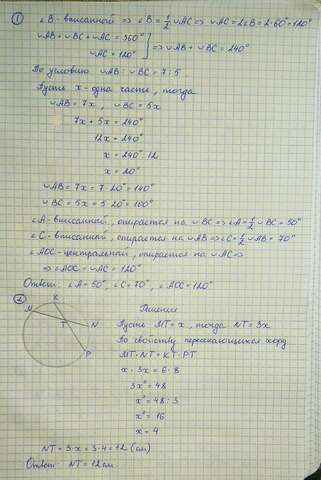 ① ∠B - вписанной ⇒ ∠B = 1/2 ◡AC ⇒ ◡AC = 2∠B = 2·60° = 120°
◡AB + ◡BC + ◡AC = 360°
◡AC = 120° ] ⇒ ◡AB + ◡BC = 240°
По условию ◡AB : ◡BC = 7 : 5
Пусть x - одна часть, тогда
◡AB = 7x, ◡BC = 5x
7x + 5x = 240°
12x = 240°
x = 240° : 12
x = 20°
◡AB = 7x = 7·20° = 140°
◡BC = 5x = 5·20° = 100°
∠A - вписанной, опирается на ◡BC ⇒ ∠A = 1/2 ◡BC = 50°
∠C - вписанной, опирается на ◡AB ⇒ ∠C = 1/2 ◡AB = 70°
∠AOC - центральной, опирается на ◡AC ⇒
⇒ ∠AOC = ◡AC = 120°
Ответ: ∠A = 50°, ∠C = 70°, ∠AOC = 120°
②
K
M
T
N
P
Решение
Пусть MT = x, тогда NT = 3x
По свойству пересекающихся хорд
MT·NT = KT·PT
x·3x = 6·8
3x² = 48
x² = 48 : 3
x² = 16
x = 4
NT = 3·x = 3·4 = 12 (см)
Ответ: NT = 12 см